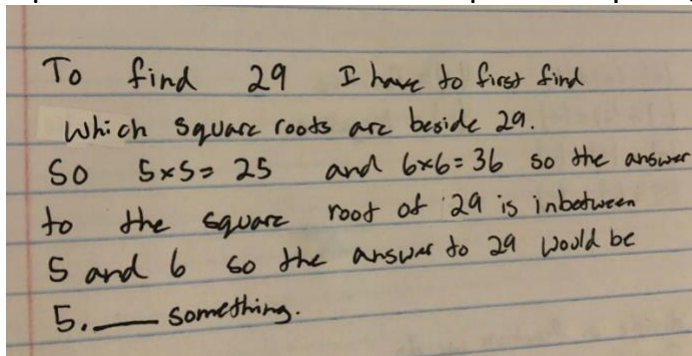 To find 29 I have to first find
which square roots are beside 29.
So 5x5= 25 and 6x6= 36 so the answer
to the square root of 29 is inbetween
5 and 6 so the answer to 29 would be
5.___ something.